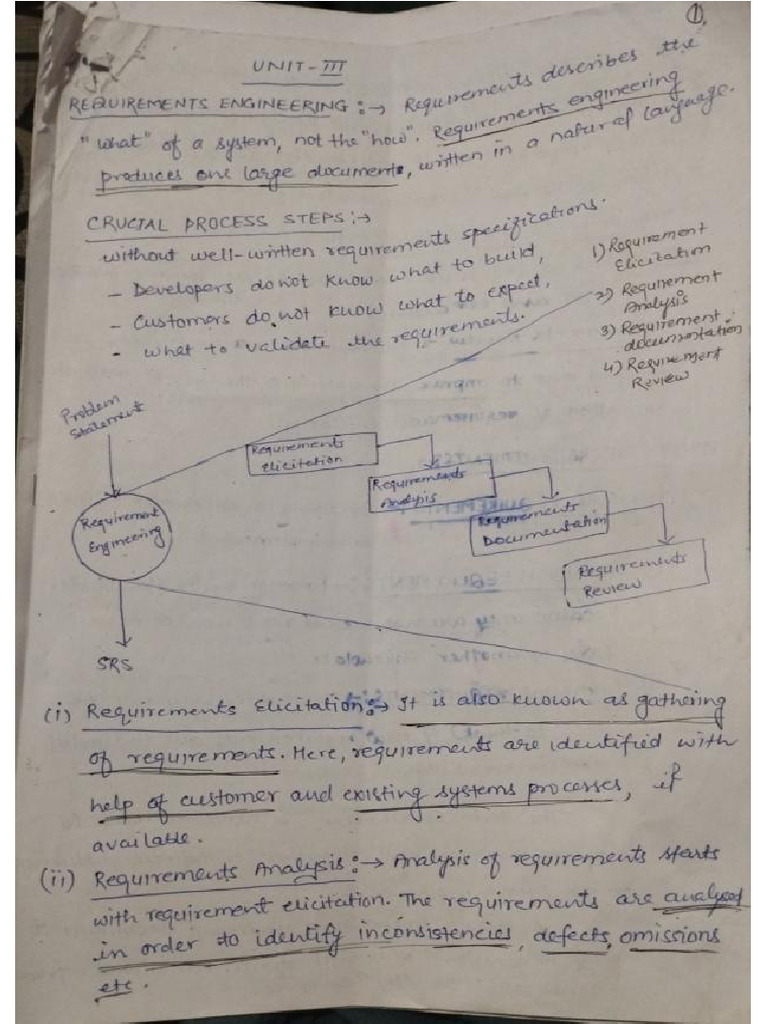 ①
UNIT-III
REQUIREMENTS ENGINEERING :→ Requirements describes the
"what" of a system, not the "how". Requirements engineering
produces one large document, written in a natural language.
CRUCIAL PROCESS STEPS :→
without well-written requirements specifications.
- Developers donot know what to build,
- Customers do not know what to expect,
- what to validate the requirements.
1) Requirement
Elicitation
2) Requirement
Analysis
3) Requirement
documentation
4) Requirement
Review
Problem
Statement
Requirements
Elicitation
Requirements
Analysis
Requirements
Documentation
Requirements
Review
Requirement
Engineering
SRS
(i) Requirements Elicitation :→ It is also known as gathering
of requirements. Here, requirements are identified with
help of customer and existing systems processes, if
available.
(ii) Requirements Analysis :→ Analysis of requirements starts
with requirement elicitation. The requirements are analyzed
in order to identify inconsistencies, defects, omissions
etc.